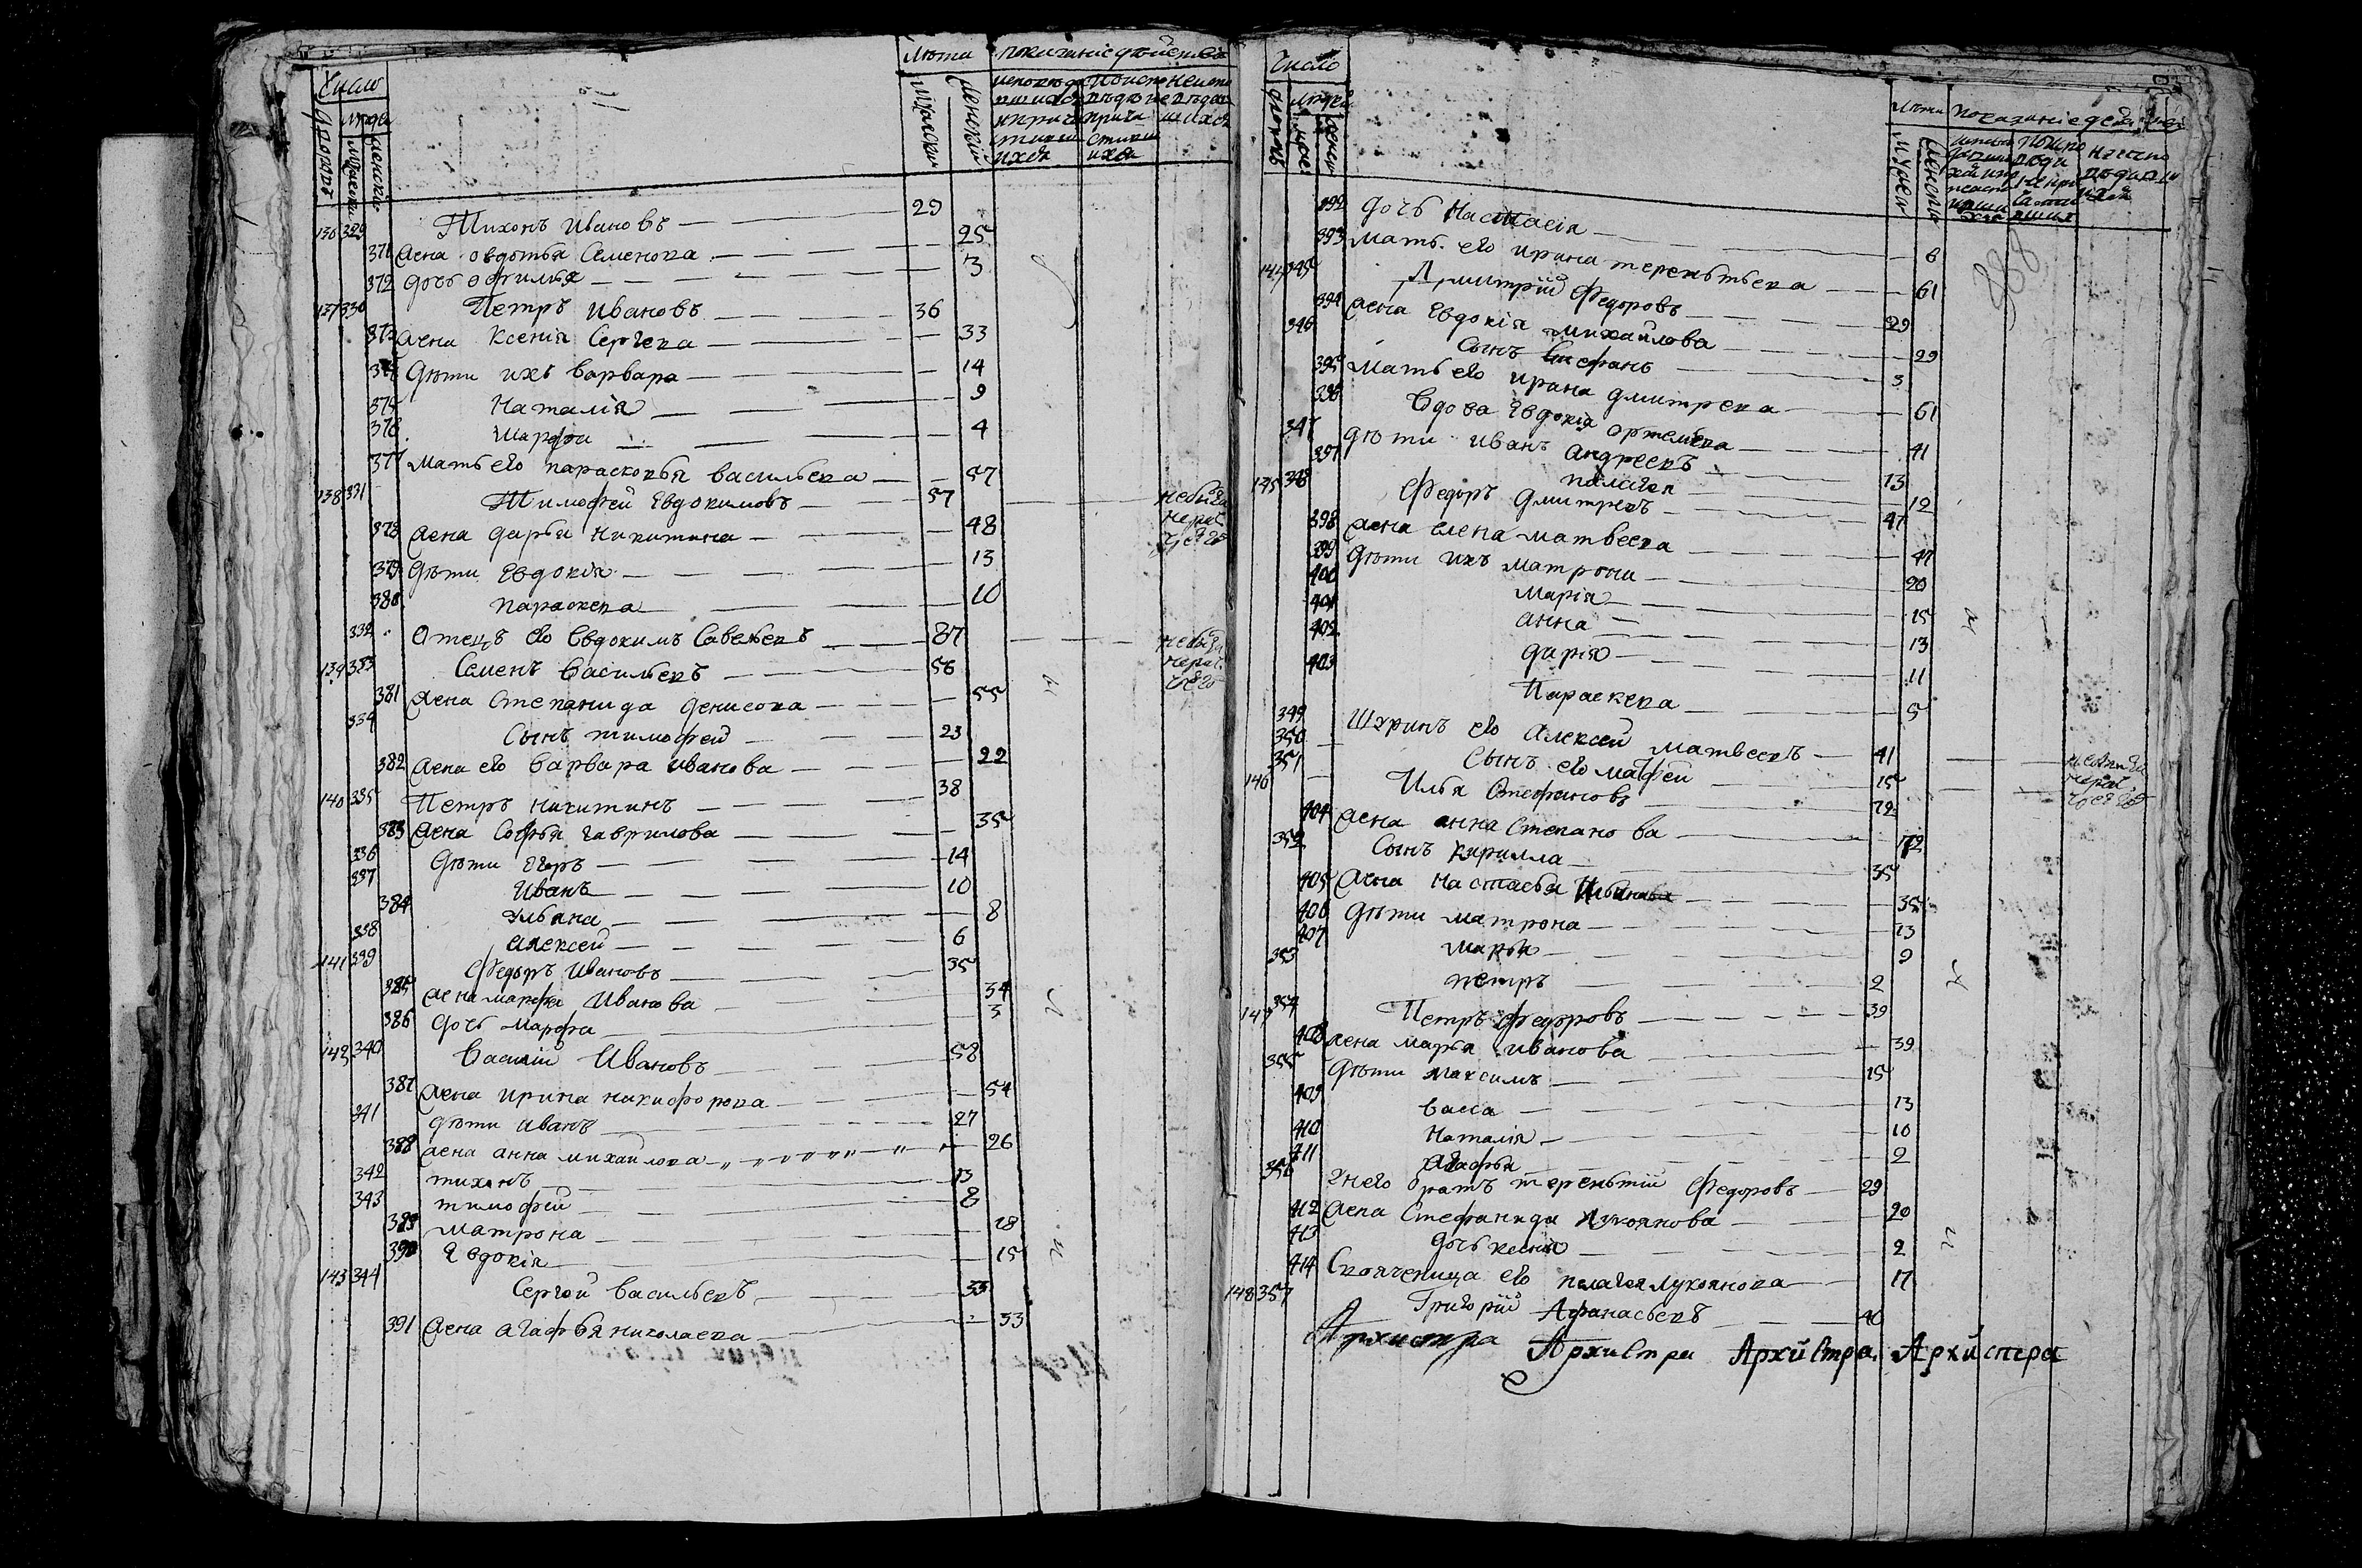 Число
Лѣта
показание дѣйствъ
людей
136 329 Тихонъ Ивановъ 29
371 жена овдотья Семенова 25
372 дочь офимья 3
137 330 Петръ Ивановъ 36
373 жена Ксения Сергева 33
374 дѣти ихъ варвара 14
375 Наталия 9
376 Марфа 4
377 мать его парасковья васильева 57
138 331 Тимофей Евдокимовъ 57
378 жена дарья никитина 48
379 дѣти Евдокія 13
380 параскева 10
332 Отецъ его Евдокимъ Савельевъ 87
139 333 Семенъ Васильевъ 56
381 жена Степанида денисова 55
334 Сынъ тимофей 23
382 жена его варвара иванова 22
140 335 Петръ никитинъ 38
383 жена Софья гаврилова 35
336 дѣти Егоръ 14
337 Иванъ 10
384 Ульяна 8
338 алексей 6
141 339 Федоръ Ивановъ 35
385 жена марфа Иванова 34
386 дочь марфа 3
142 340 Василій Ивановъ 58
387 жена ирина никифорова 54
341 дѣти иванъ 27
388 жена анна михаилова 26
342 тихонъ 13
343 тимофей 8
389 матрона 18
390 Евдокія 15
143 344 Сергей васильевъ 33
391 жена агафья николаева 33
Число
людей
Лѣта
показание
392 дочь Настасія 8
393 мать его ирина терентьева 61
144 345 Дмитрій Федоровъ 29
394 жена Евдокія михайлова 29
346 Сынъ Стефанъ 3
395 мать его ирина дмитрева 61
396 Вдова Евдокія артемьева 41
347 дѣти иванъ андреевъ 13
397 палагея 12
145 348 Федоръ дмитревъ 47
398 жена елена матвеева 47
399 дѣти ихъ матрона 20
400 Марія 15
401 анна 13
402 дарія 11
403 Параскева 5
349 Шуринъ его Алексей матвеевъ 41
350 Сынъ его матфей 15
146 351 Илья Стефановъ 72
404 жена анна Степанова 72
352 Сынъ Кирилла 35
405 жена настасья Иванова 35
406 дѣти матрона 13
407 марья 9
353 петръ 2
147 354 Петръ Федоровъ 39
408 жена марья иванова 39
355 дѣти максимъ 15
409 васса 13
410 Наталія 10
411 агафья 2
356 Унего братъ терентий Федоровъ 29
412 жена Стефанида Лукоянова 20
413 дочь ксения 2
414 Свояченица его пелагея лукоянова 17
148 357 Григорій Афанасьевъ 40
Архистра Архистра Архистра Архистра